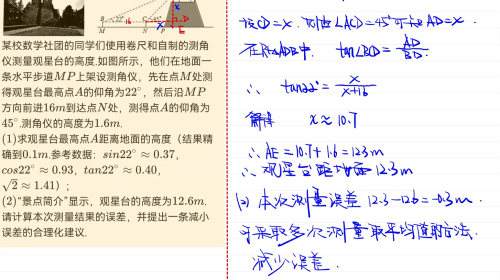 B 22° 16 C 45° D
x
x
1.6
M N E P
某校数学社团的同学们使用卷尺和自制的测角
仪测量观星台的高度.如图所示，他们在地面一
条水平步道MP上架设测角仪，先在点M处测
得观星台最高点A的仰角为22°，然后沿MP
方向前进16m到达点N处，测得点A的仰角为
45°.测角仪的高度为1.6m.
(1)求观星台最高点A距离地面的高度（结果精
确到0.1m.参考数据：sin22° ≈ 0.37，
cos22° ≈ 0.93，tan22° ≈ 0.40，
√2 ≈ 1.41）；
(2)“景点简介”显示，观星台的高度为12.6m.
请计算本次测量结果的误差，并提出一条减小
误差的合理化建议.
设CD=x. 则由∠ACD=45°可知 AD=x.
在Rt△ADB中. tan∠BD = AD/BD.
∴ tan22° = x/(x+16)
解得 x≈10.7
∴ AE=10.7+1.6=12.3m
∴ 观星台距地面12.3m
(2) 本次测量误差 12.3-12.6=-0.3m.
可采取多次测量取平均值的方法.
减少误差.